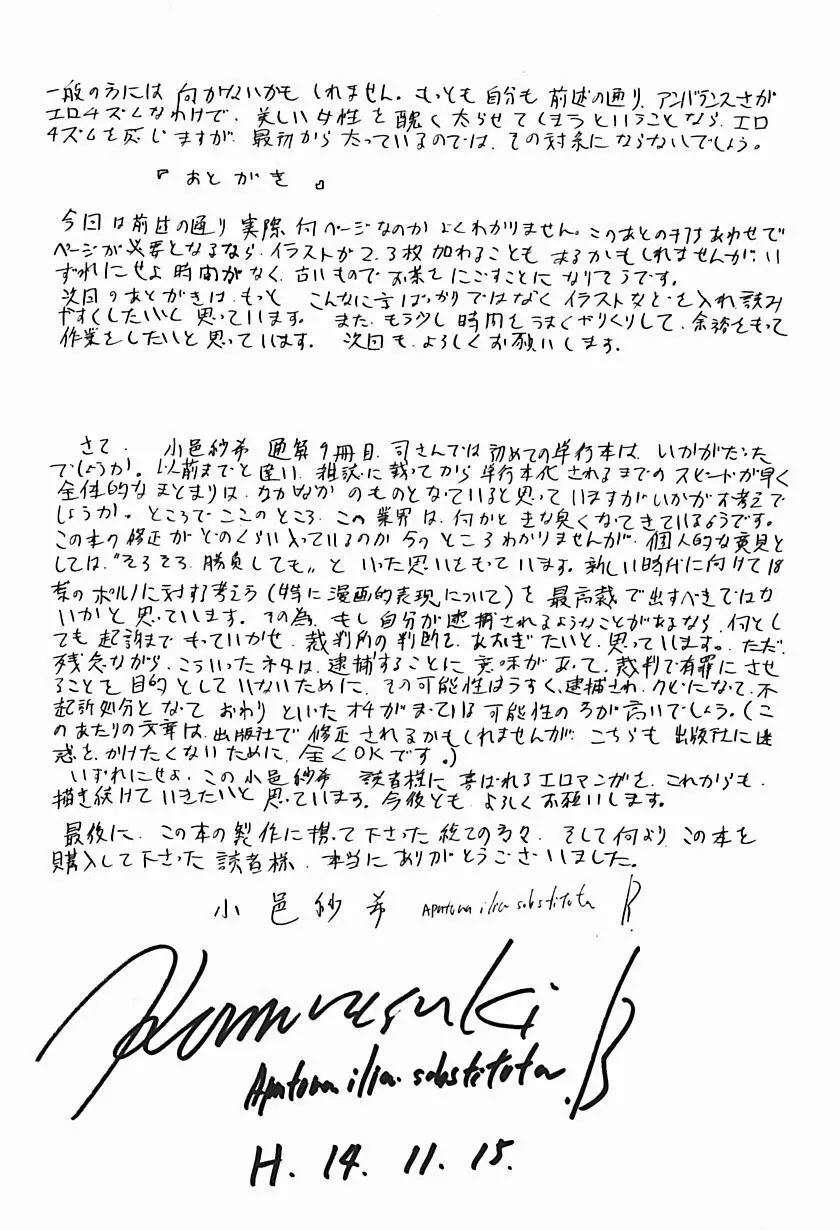 一般の方には何がないかもしれません。もっとも自分も前述の通り、アンバランスさが
エロチズムなわけで、美しい女性を醜く太らせてしまうということなら、エロ
チズムを感じますが、最初から太っているのでは、その対象にならないでしょう。
『おとがき』
今回は前述の通り実際何ページなのかよくわかりません。このあとの打ちあわせで
ページが必要となるなら、イラストが2、3枚加わることもあるかもしれませんが、い
ずれにせよ時間がなく、古いものでお茶をにごすことになりそうです。
次回のあとがきは、もっとこんなに字ばっかりではなくイラストなどを入れ読み
やすくしたいと思っています。また、もう少し時間をうまくやりくりして、余裕をもって
作業をしたいと思っています。次回も、よろしくお願いします。
さて、小邑紗希通算9冊目、司さんでは初めての単行本は、いかがだった
でしょうか。以前までと違い、雑誌に載ってから単行本化されるまでのスピードが早く
全体的なまとまりは、なかなかのものとなっていると思っていますがいかがお考えで
しょうか。ところでここのところ、この業界は、何かときな臭くなってきているようです。
この本の修正がどのくらい入っているのか今のところわかりませんが、個人的な意見と
しては、"そろそろ、勝負しても"といった思いをもっています。新しい時代に向けて18
禁のポルノに対する考えう(特に漫画的表現について)を最高裁で出すべきではな
いかと思っています。その為、もし自分が逮捕されるようなことがあるなら、何とし
ても起訴までもっていかせ、裁判所の判断を、あおぎたいと、思っています。ただ、
残念ながら、こういったネタは、逮捕することに意味があって、裁判で有罪にさせ
ることを目的としていないために、その可能性はうすく、逮捕され、クビになって、不
起訴処分となっておわりといったオチがまっている可能性の方が高いでしょう。(こ
のあたりの文章は、出版社で修正されるかもしれませんが、こちらも出版社に迷
惑をかけたくないために、全くOKです。)
いずれにせよ、この小邑紗希、読者様に喜ばれるエロマンガを、これからも、
描き続けていきたいと思っています。今後ともよろしくお願いします。
最後に、この本の製作に携って下さった総ての方々、そして何より、この本を
購入して下さった読者様、本当にありがとうございました。
小邑紗希 Apatura ilia substituta B
Komurasaki
Apatura ilia. substituta. B
H. 14. 11. 15.